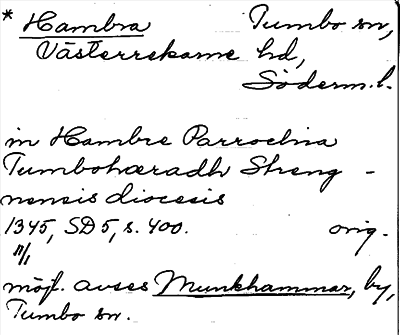 * Hambra Tumbo sn,
Västerrekarne hd,
Söderm. l.
in Hambre Parrochia
Tumbohæradh Streng-
nensis diocesis
1345, SD 5, s. 400. orig.
n/1
möjl. avses Munkhammar, by,
Tumbo sn.